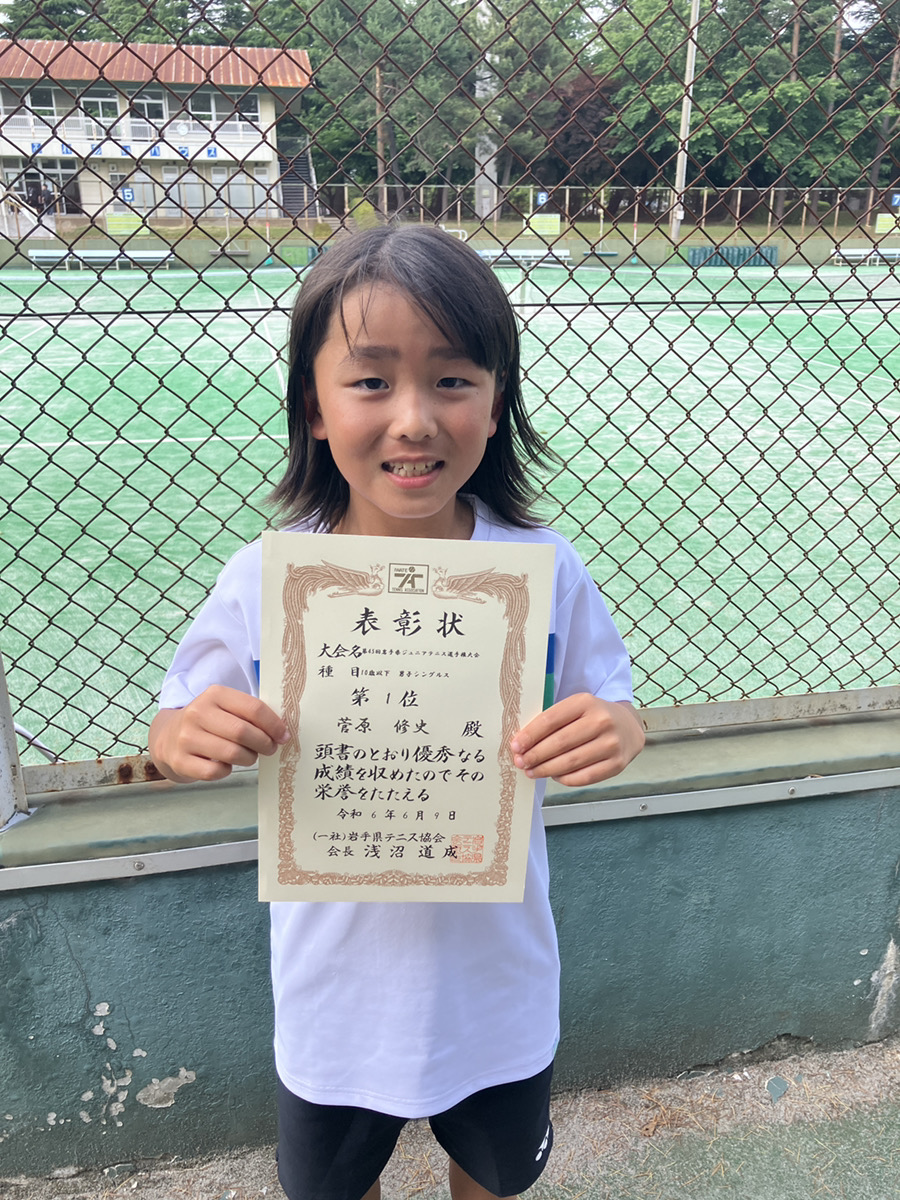 IWATE
TENNIS ASSOCIATION
表彰状
大会名 第45回岩手県ジュニアテニス選手権大会
種 目 10歳以下 男子シングルス
第 1 位
菅原 修史 殿
頭書のとおり優秀なる
成績を収めたのでその
栄誉をたたえる
令和 6 年 6 月 9 日
(一社)岩手県テニス協会
会長 浅沼 道成
5
6
7